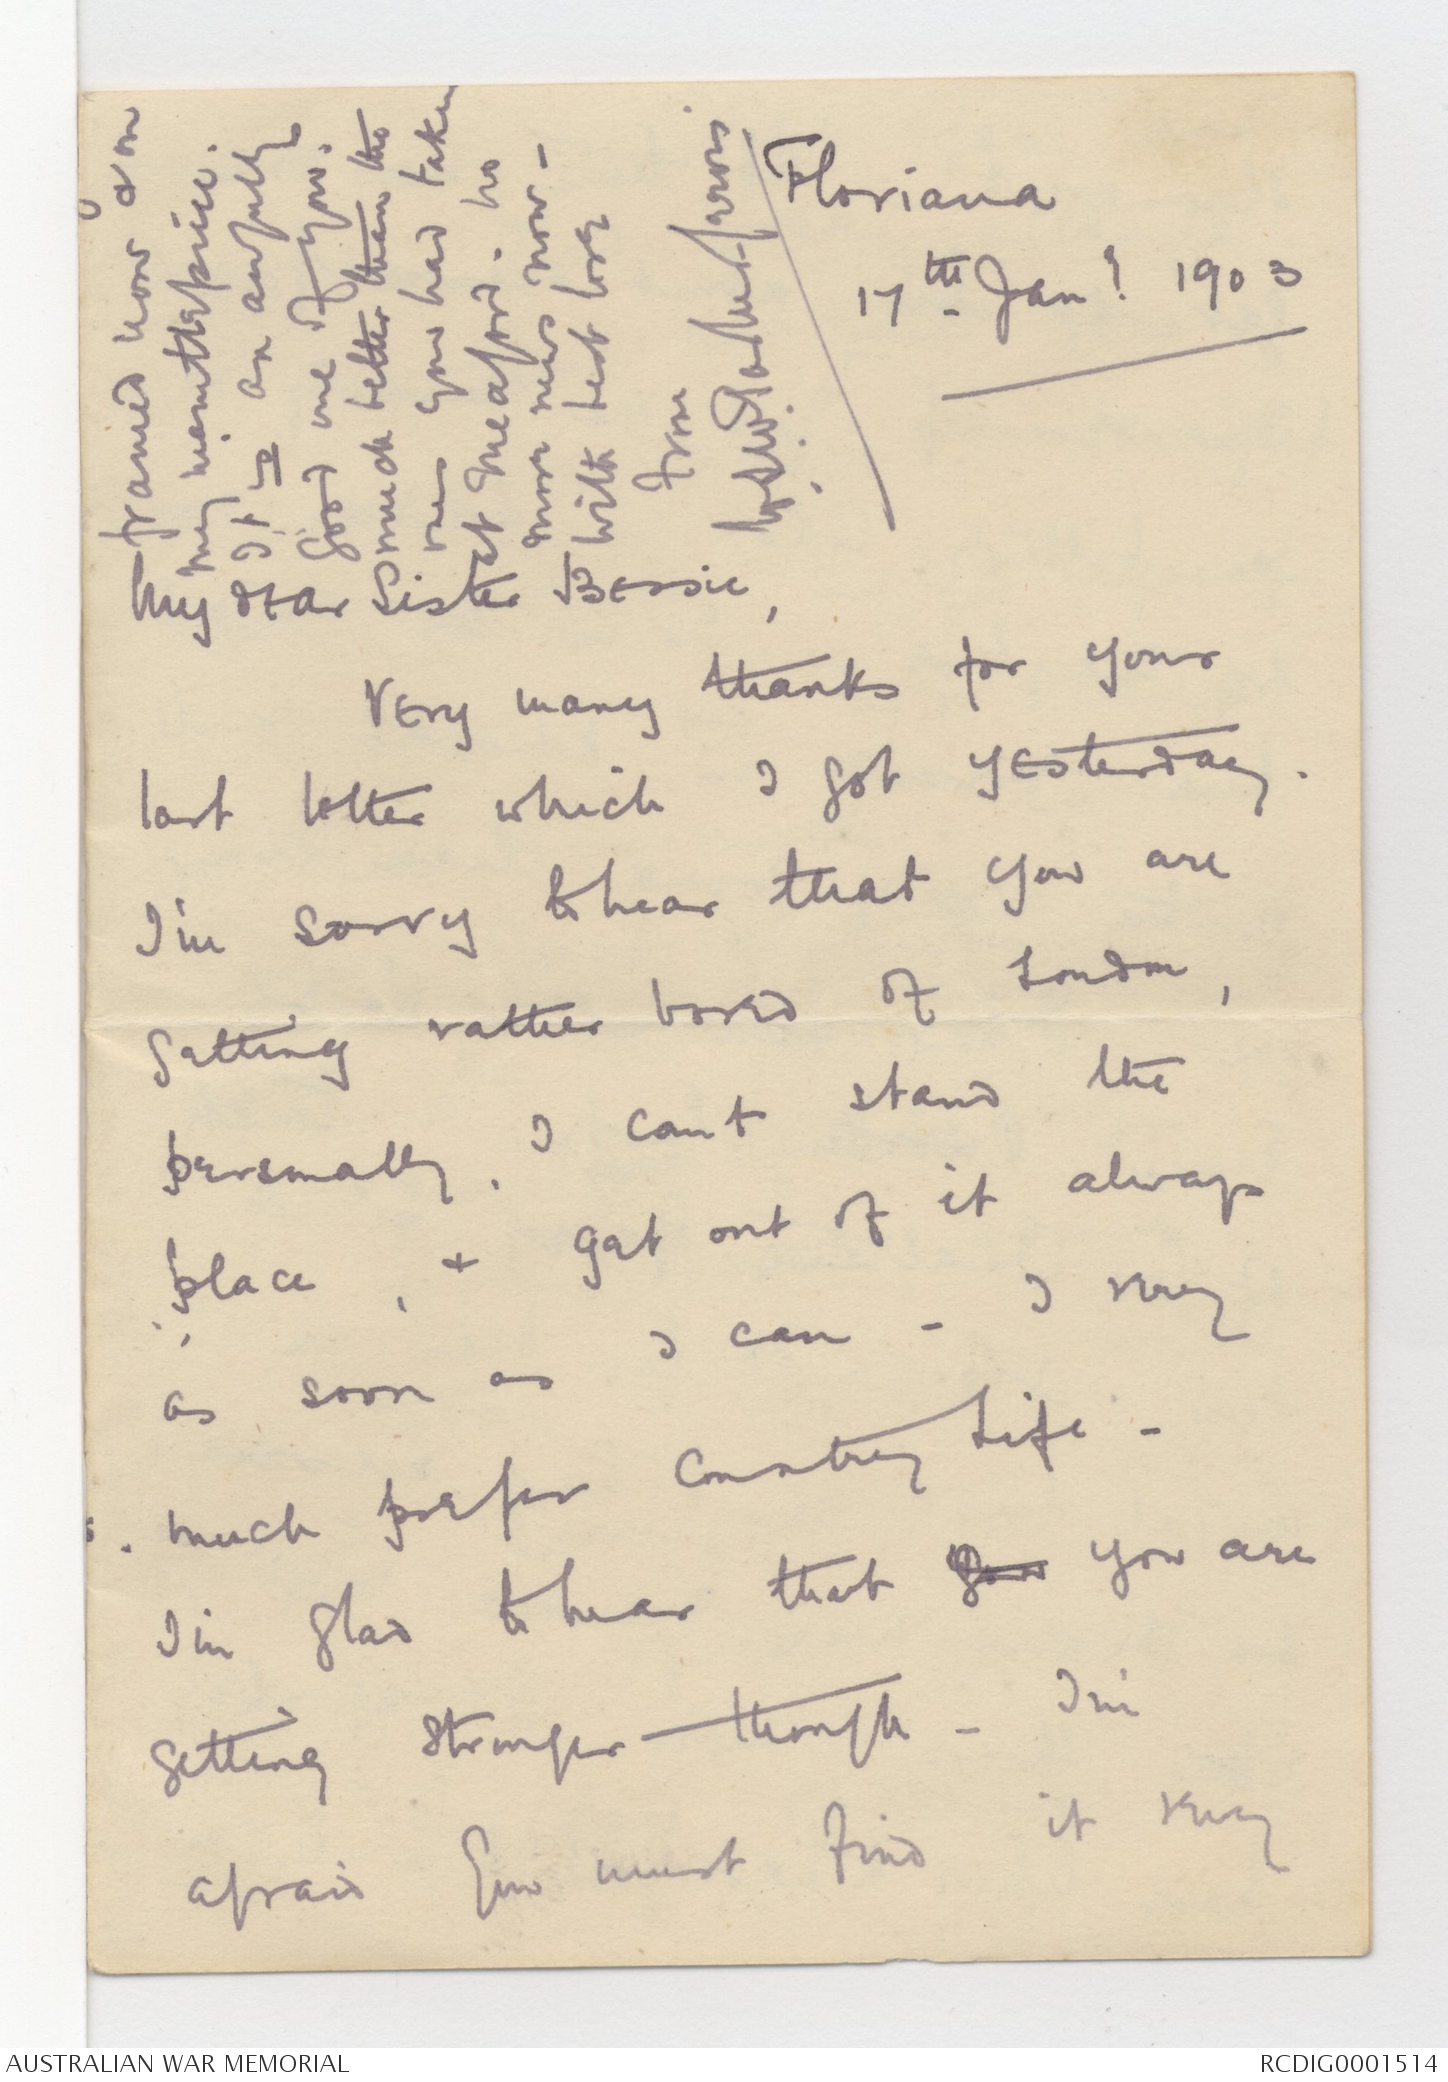 Floriana
17th Jany 1903
My dear Sister Bessie,
Very many thanks for your
last letter which I got yesterday.
I'm sorry to hear that you are
getting rather bored of London,
personally, I can't stand the
place, + get out of it always
as soon as I can - I very
much prefer Country Life -
I'm glad to hear that you are
getting stronger though - I'm
afraid you must find it very
framed now & on
my mantlepiece.
It is an awfully
good one of you.
much better than the
ones you had taken
at Meaford. No
more news now -
With best love
from
AUSTRALIAN WAR MEMORIAL
RCDIG0001514